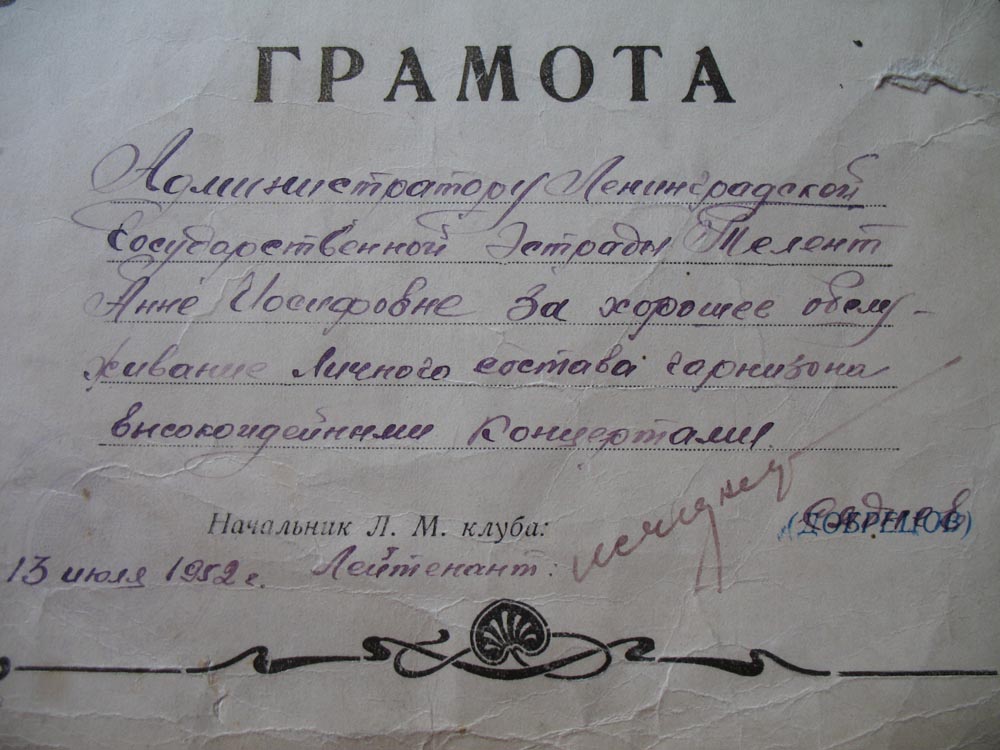 ГРАМОТА
Администратору Ленинградской
Государственной Эстрады Телент
Анне Иосифовне За хорошее обслу-
живание личного состава гарнизона
высокоидейными концертами.
Начальник Л. М. клуба: (ДОБРЕЦОВ)
13 июля 1952 г. Лейтенант: